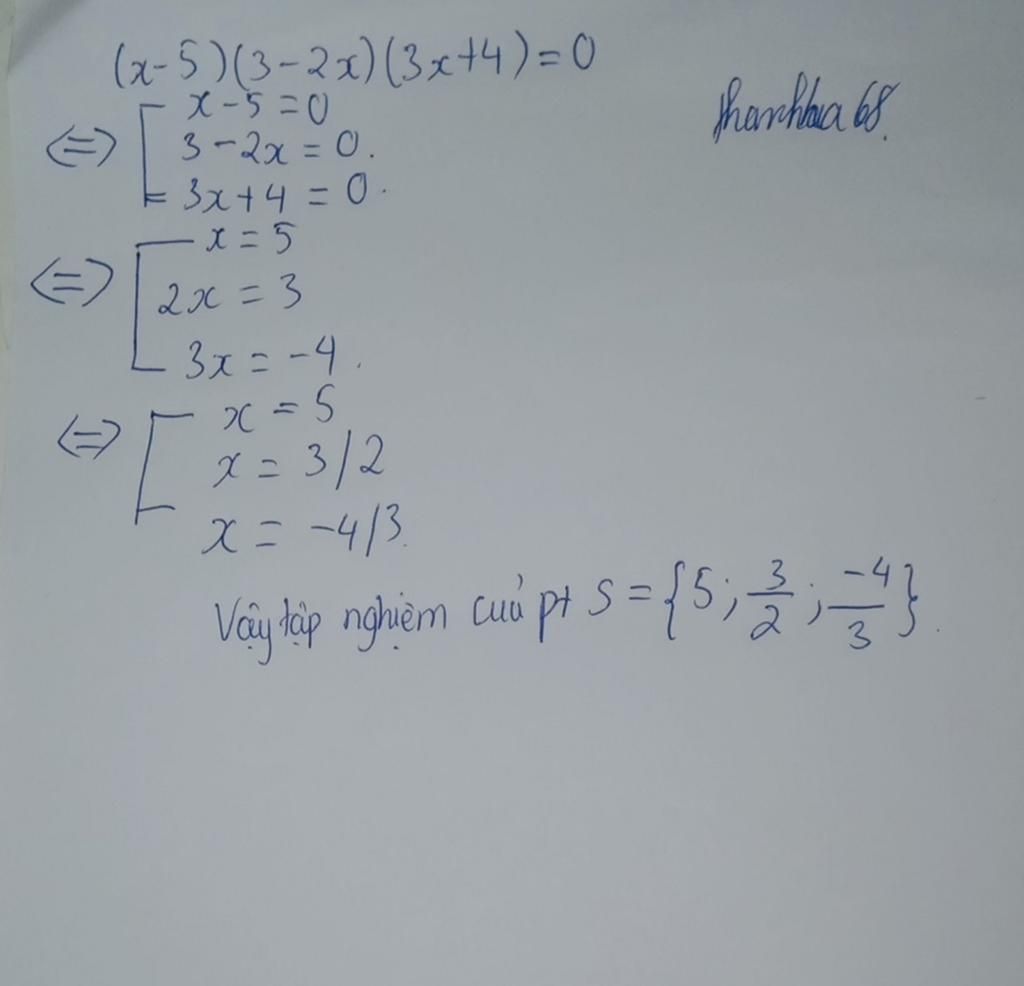 (x-5)(3-2x)(3x+4)=0
thanhhoa68.
⇔ [ x-5=0
3-2x=0.
3x+4=0.
⇔ [ x=5
2x=3
3x=-4.
⇔ [ x=5
x=3/2
x=-4/3.
Vậy tập nghiệm của pt S={5;3/2;-4/3}.